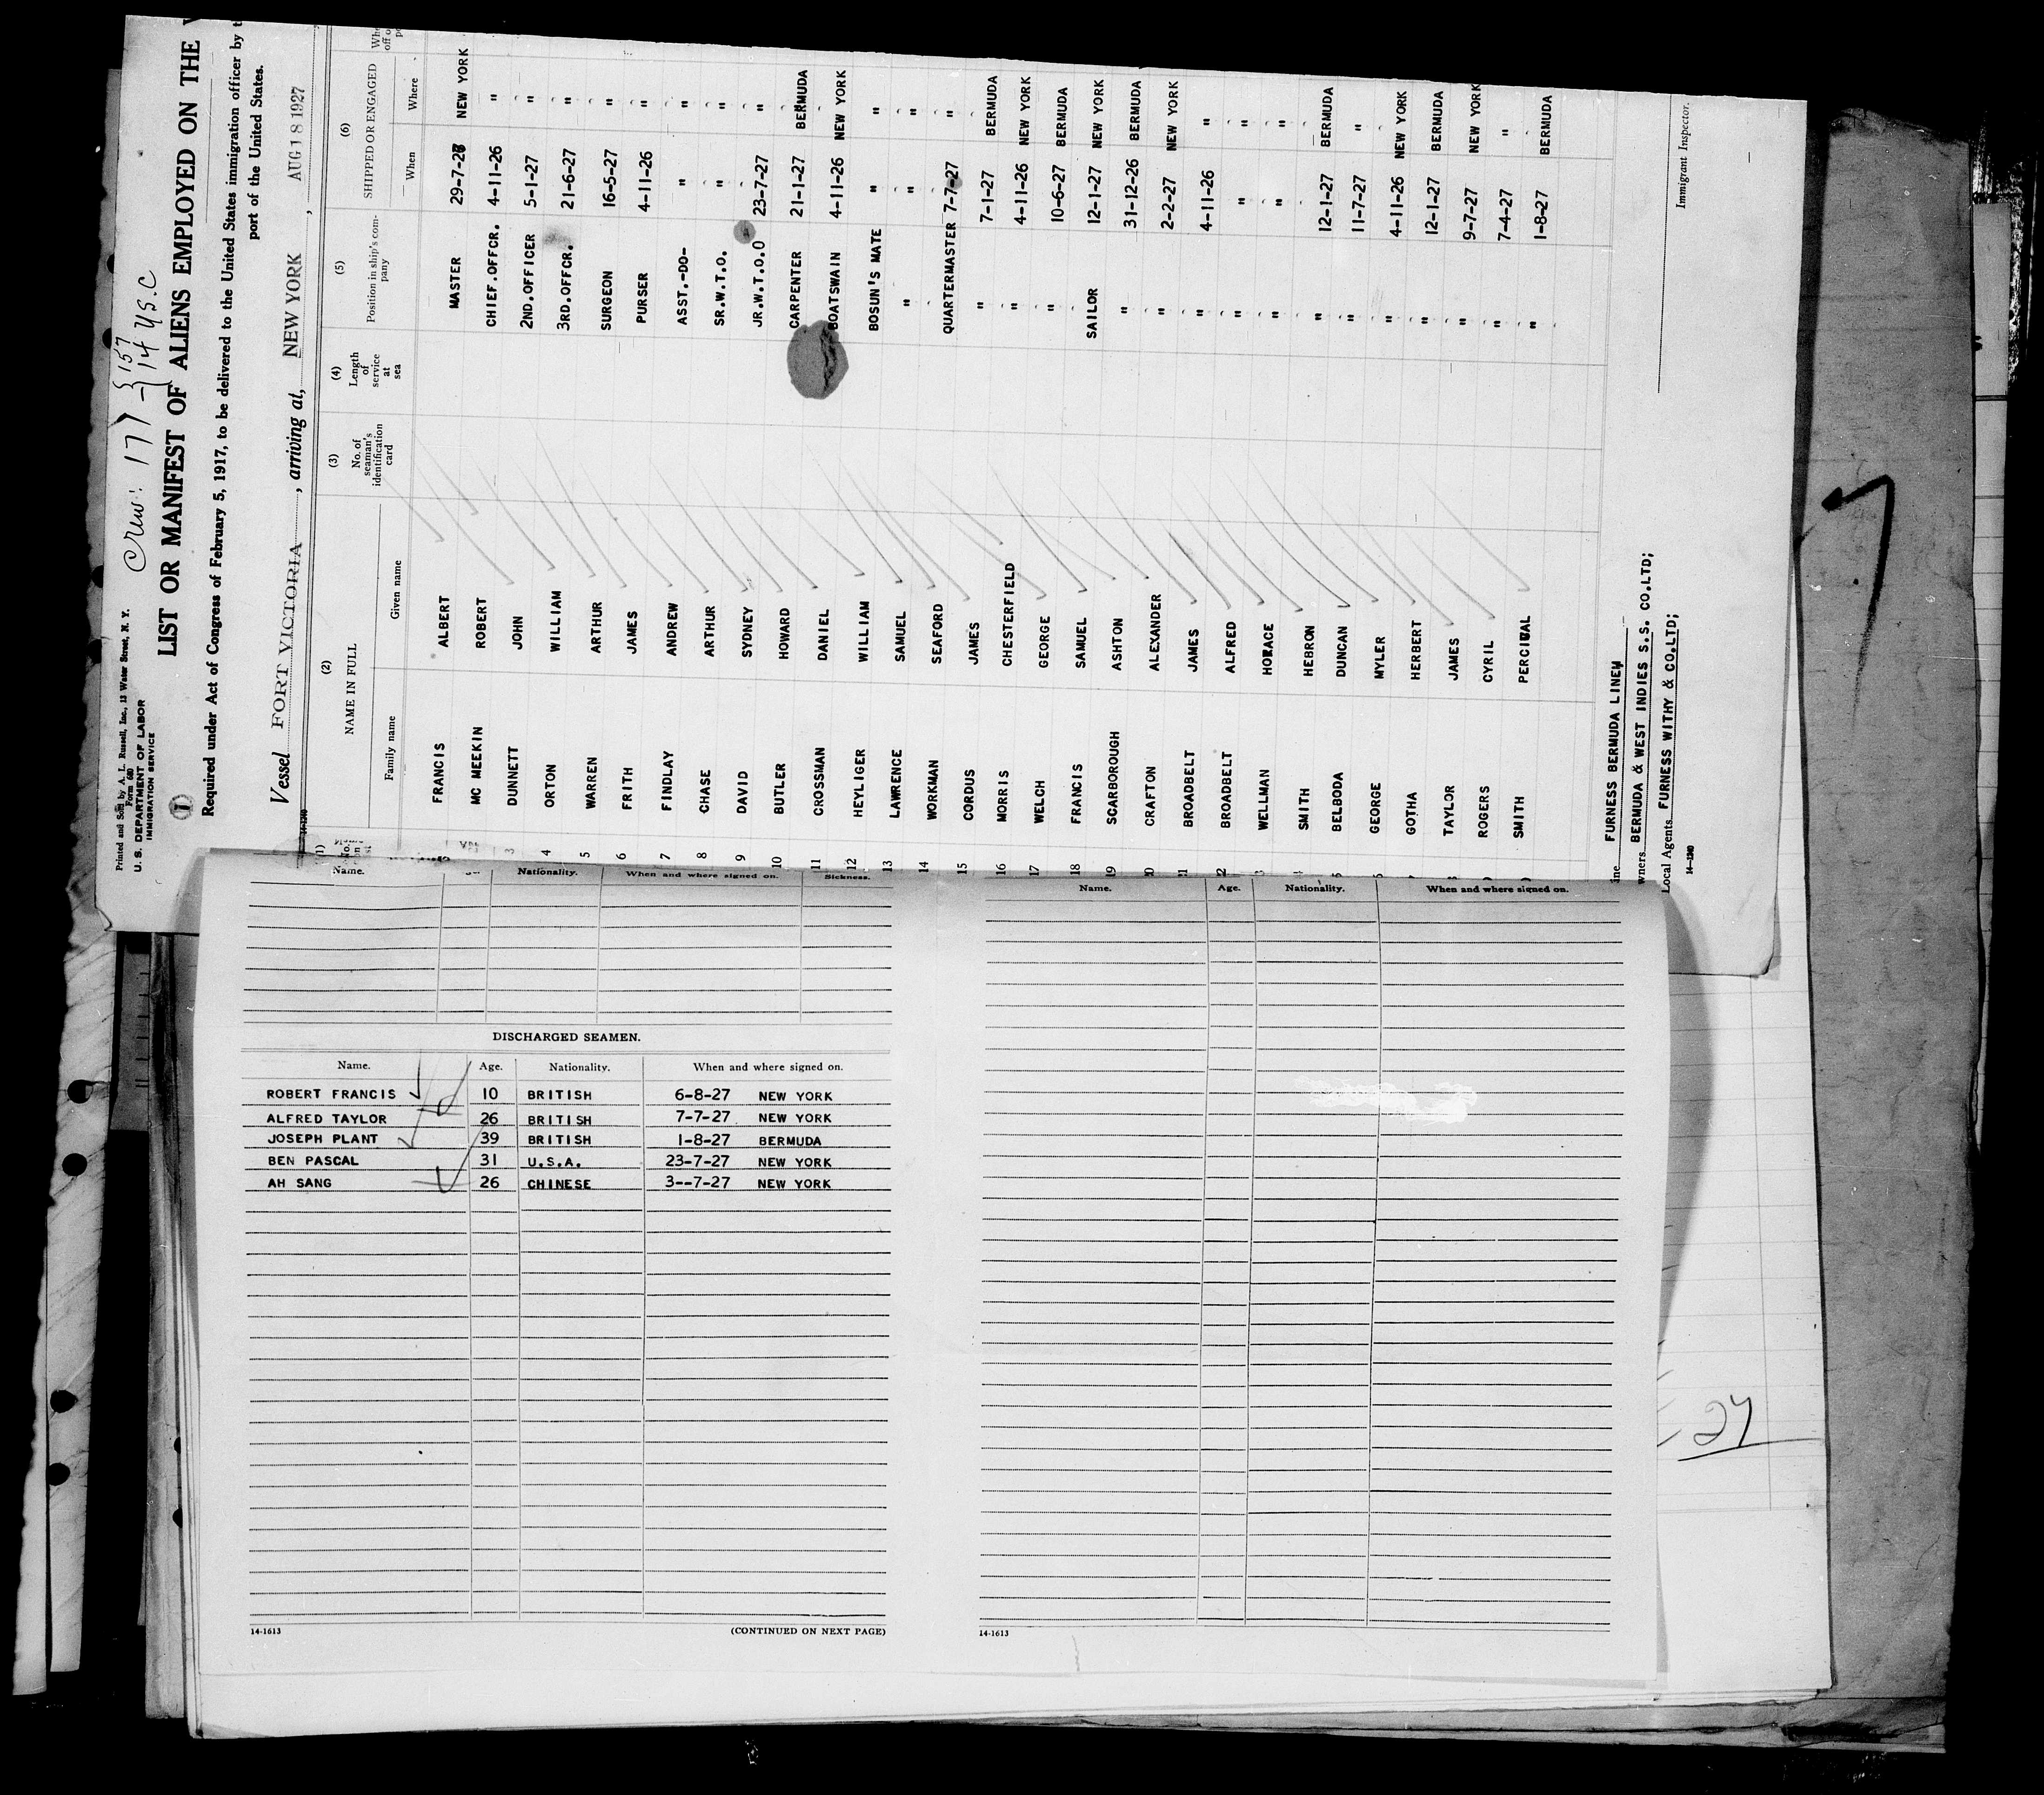 Printed and Sold by A. L. Russell, Inc., 13 Water Street, N. Y.
Form 680
U. S. DEPARTMENT OF LABOR
IMMIGRATION SERVICE
Crew: 177 - { 157
14 US.C
LIST OR MANIFEST OF ALIENS EMPLOYED ON THE
Required under Act of Congress of February 5, 1917, to be delivered to the United States immigration officer by
port of the United States.
Vessel FORT VICTORIA, arriving at, NEW YORK, AUG 18 1927
14-1240
(1) (2) (3) (4) (5) (6)
NAME IN FULL No. of seaman's identification card Length of service at sea Position in ship's company SHIPPED OR ENGAGED
Family name Given name When Where
FRANCIS ALBERT MASTER 29-7-27 NEW YORK
MC MEEKIN ROBERT CHIEF.OFFCR. 4-11-26 "
3 DUNNETT JOHN 2ND.OFFICER 5-1-27 "
4 ORTON WILLIAM 3RD.OFFCR. 21-6-27 "
5 WARREN ARTHUR SURGEON 16-5-27 "
6 FRITH JAMES PURSER 4-11-26 "
7 FINDLAY ANDREW ASST.-DO- " "
8 CHASE ARTHUR SR.W.T.O. " "
9 DAVID SYDNEY JR.W.T.O.O 23-7-27 "
10 BUTLER HOWARD CARPENTER 21-1-27 BERMUDA
11 CROSSMAN DANIEL BOATSWAIN 4-11-26 NEW YORK
12 HEYLIGER WILLIAM BOSUN'S MATE " "
13 LAWRENCE SAMUEL " " "
14 WORKMAN SEAFORD QUARTERMASTER 7-7-27 "
15 CORDUS JAMES " 7-1-27 BERMUDA
16 MORRIS CHESTERFIELD " 4-11-26 NEW YORK
17 WELCH GEORGE " 10-6-27 BERMUDA
18 FRANCIS SAMUEL SAILOR 12-1-27 NEW YORK
19 SCARBOROUGH ASHTON " 31-12-26 BERMUDA
CRAFTON ALEXANDER " 2-2-27 NEW YORK
BROADBELT JAMES " 4-11-26 "
BROADBELT ALFRED " " "
WELLMAN HORACE " " "
SMITH HEBRON "
BELBODA DUNCAN " 12-1-27 BERMUDA
GEORGE MYLER " 11-7-27 "
GOTHA HERBERT " 4-11-26 NEW YORK
TAYLOR JAMES " 12-1-27 BERMUDA
ROGERS CYRIL " 9-7-27 NEW YORK
SMITH PERCIVAL " 7-4-27 "
" 1-8-27 BERMUDA
FURNESS BERMUDA LINE
BERMUDA & WEST INDIES S.S. CO.LTD;
Local Agents FURNESS WITHY & CO.LTD;
14-1240
Immigrant Inspector.
Name. Nationality. When and where signed on. Sickness.
DISCHARGED SEAMEN.
Name. Age. Nationality. When and where signed on.
ROBERT FRANCIS 10 BRITISH 6-8-27 NEW YORK
ALFRED TAYLOR 26 BRITISH 7-7-27 NEW YORK
JOSEPH PLANT 39 BRITISH 1-8-27 BERMUDA
BEN PASCAL 31 U.S.A. 23-7-27 NEW YORK
AH SANG 26 CHINESE 3--7-27 NEW YORK
14-1613 (CONTINUED ON NEXT PAGE)
Name. Age. Nationality. When and where signed on.
14-1613
27